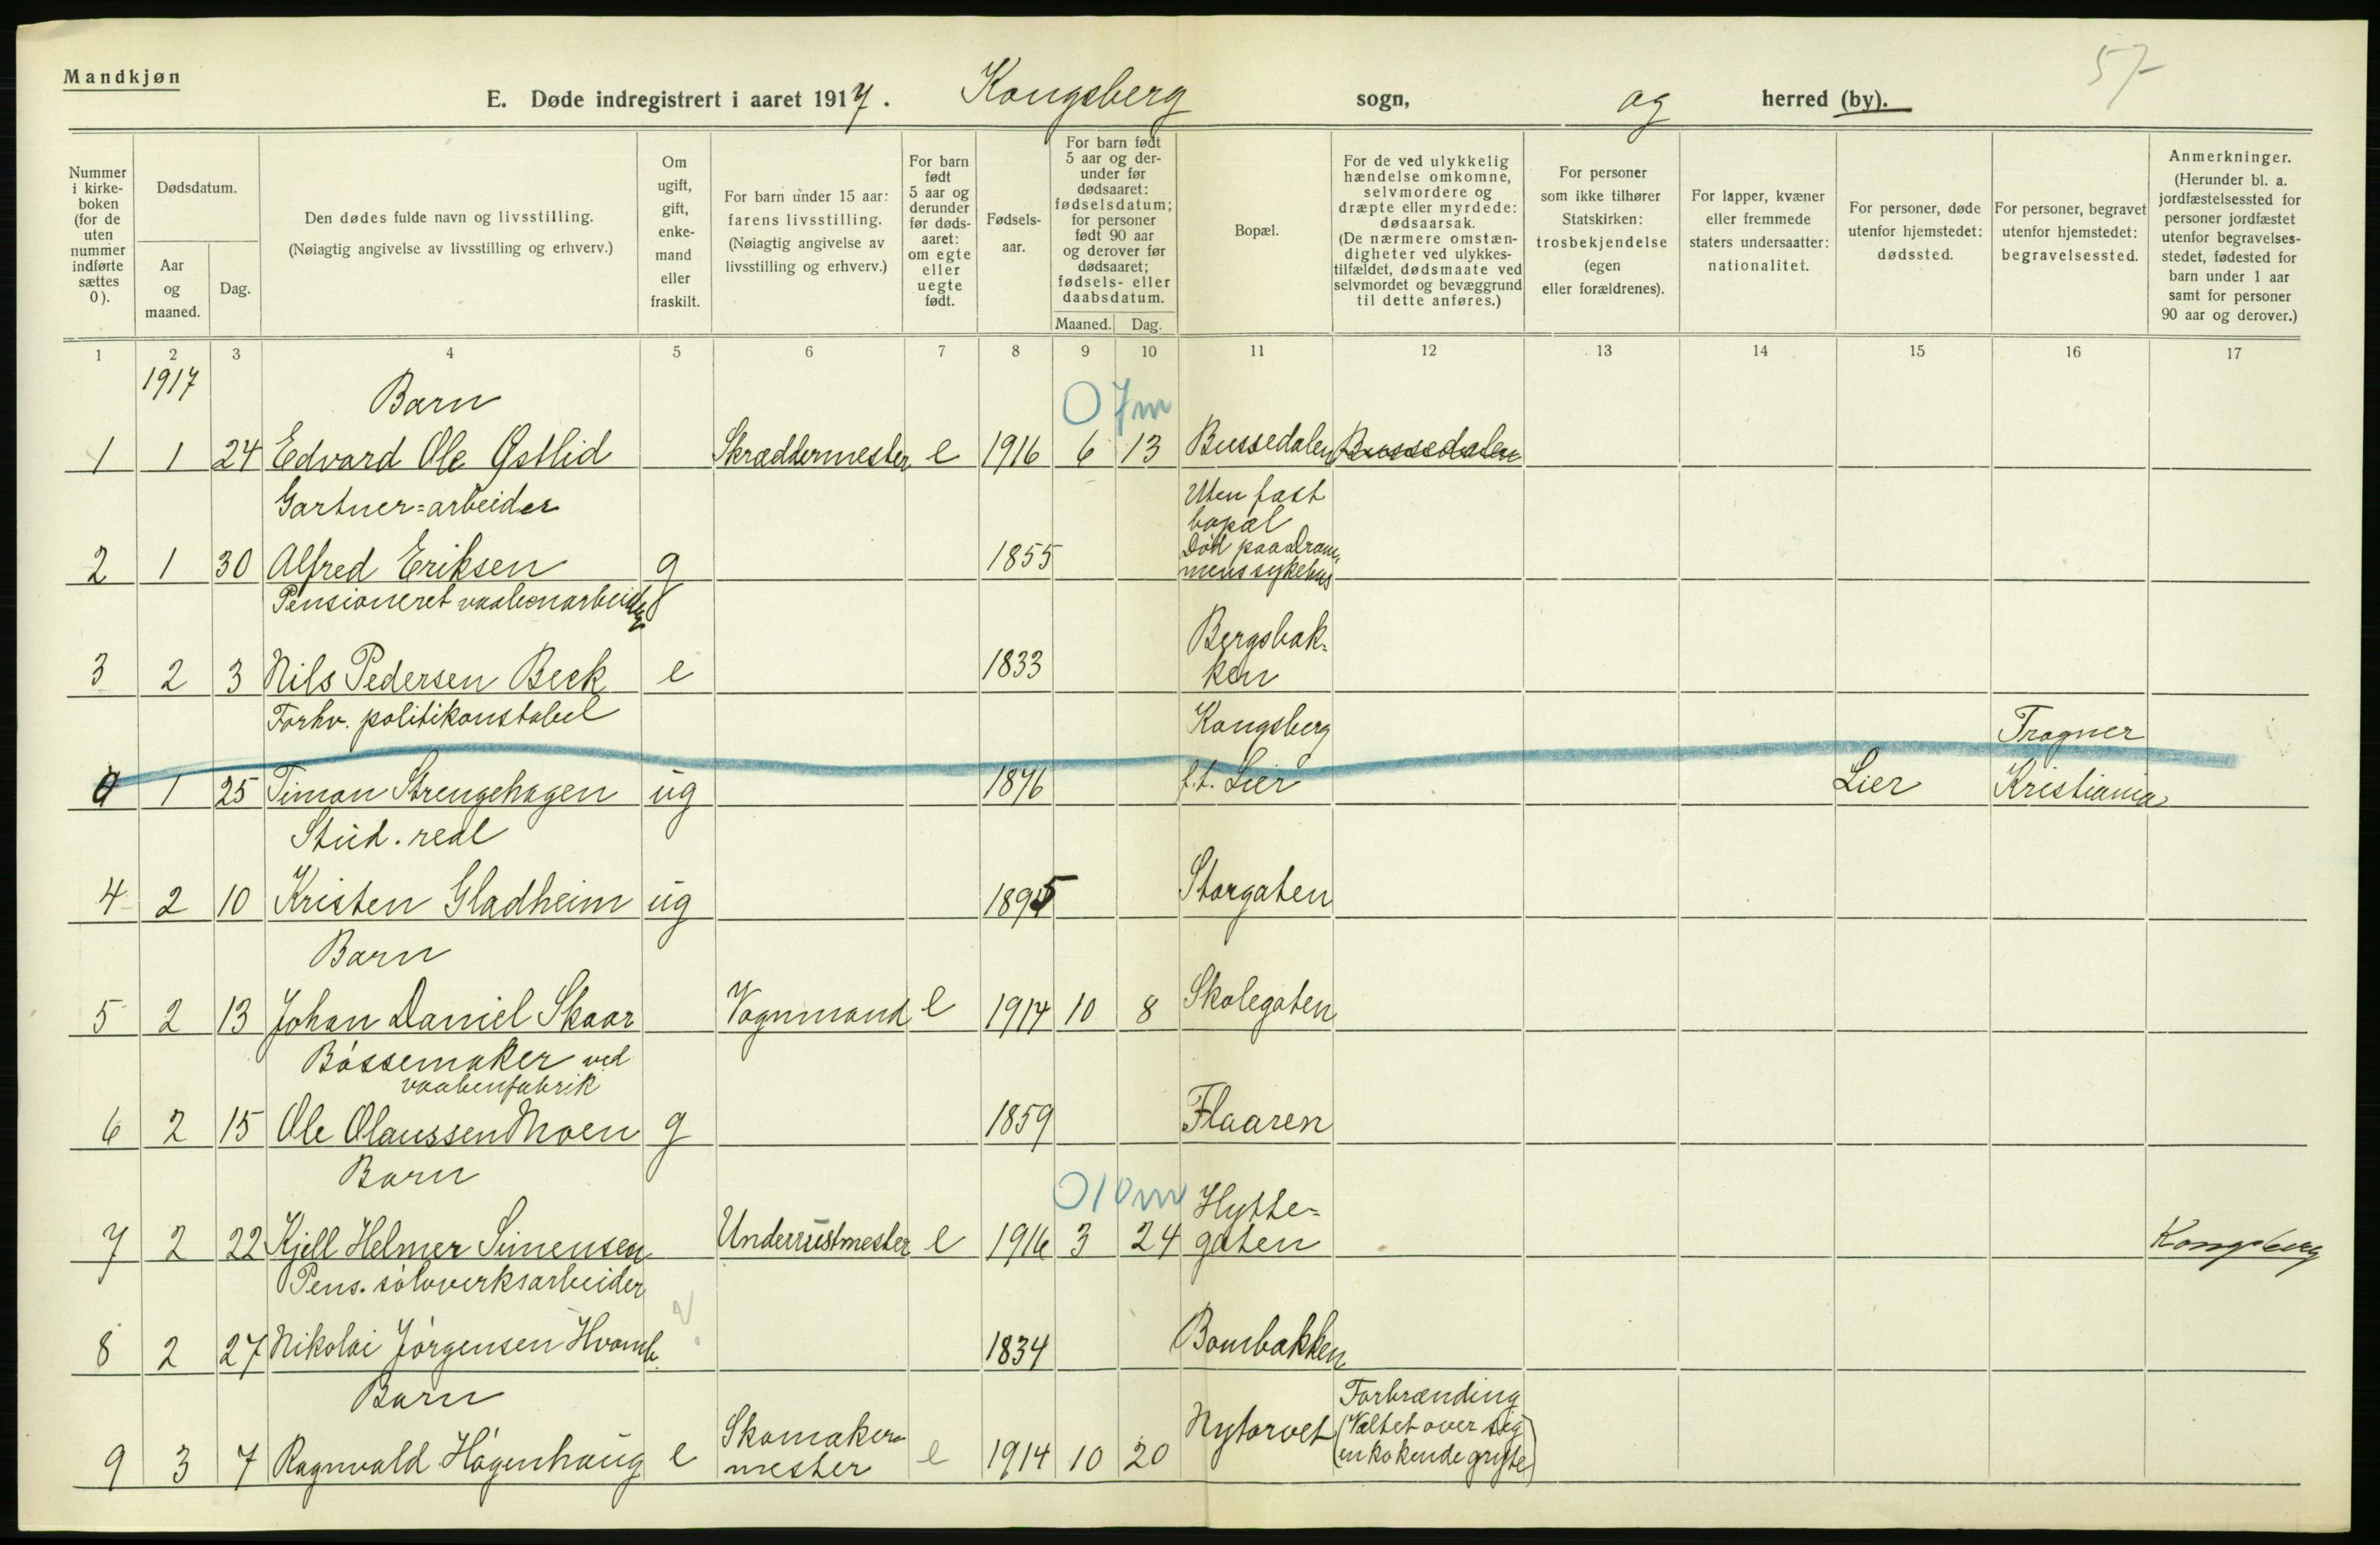 57
Mandkjøn
E. Døde indregistrert i aaret 1917. Kongsberg sogn, og herred (by).
Nummer i kirke-boken (for de uten nummer indførte sættes 0).
Dødsdatum.
Aar og maaned.
Dag.
Den dødes fulde navn og livsstilling.
(Nøiagtig angivelse av livsstilling og erhverv.)
Om ugift, gift, enke-mand eller fraskilt.
For barn under 15 aar: farens livsstilling. (Nøiagtig angivelse av livsstilling og erhverv.)
For barn født 5 aar og derunder før døds-aaret: om egte eller uegte født.
Fødsels-aar.
For barn født 5 aar og der-under før dødsaaret: fødselsdatum; for personer født 90 aar og derover før dødsaaret; fødsels- eller daabsdatum.
Maaned. Dag.
Bopæl.
For de ved ulykkelig hændelse omkomne, selvmordere og dræpte eller myrdede: dødsaarsak. (De nærmere omstæn-digheter ved ulykkes-tilfældet, dødsmaate ved selvmordet og bevæggrund til dette anføres.)
For personer som ikke tilhører Statskirken: trosbekjendelse (egen eller forældrenes).
For lapper, kvæner eller fremmede staters undersaatter: nationalitet.
For personer, døde utenfor hjemstedet: dødssted.
For personer, begravet utenfor hjemstedet: begravelsessted.
Anmerkninger. (Herunder bl. a. jordfæstelsessted for personer jordfæstet utenfor begravelses-stedet, fødested for barn under 1 aar samt for personer 90 aar og derover.)
1 2 3 4 5 6 7 8 9 10 11 12 13 14 15 16 17
1917
Barn 0 7m
1 1 24 Edvard Ole Østlid Skræddermester e 1916 6 13 Bussedalen Bussedalen
Gartner=arbeider Uten fast
bopæl
Død paa Dram-
2 1 30 Alfred Eriksen g 1855 mens sykehus
Pensioneret vaabenarbeider
Bergsbak-
3 2 3 Nils Pedersen Beck e 1833 ken
Forhv. politikonstabel Kongsberg Frogner
0 1 25 Timan Strengehagen ug 1876 f.t. Lier Lier Kristiania
Stud. real
4 2 10 Kristen Gladheim ug 1895 Storgaten
Barn
5 2 13 Johan Daniel Skaar Vognmand e 1914 10 8 Skolegaten
Bøssemaker ved
vaabenfabrik
6 2 15 Ole Olaussen Moen g 1859 Flaaren
Barn 0 10m Hytte-
7 2 22 Kjell Helmer Simensen Underrustmester e 1916 3 24 gaten Kongsberg
Pens. sølvverksarbeider
8 2 27 Nikolai Jørgensen Hvamb ? 1834 Bombakken
Barn Forbrænding
Skomaker- (Væltet over sig
9 3 7 Ragnvald Høgenhaug e mester e 1914 10 20 Nytorvet en kokende gryte)